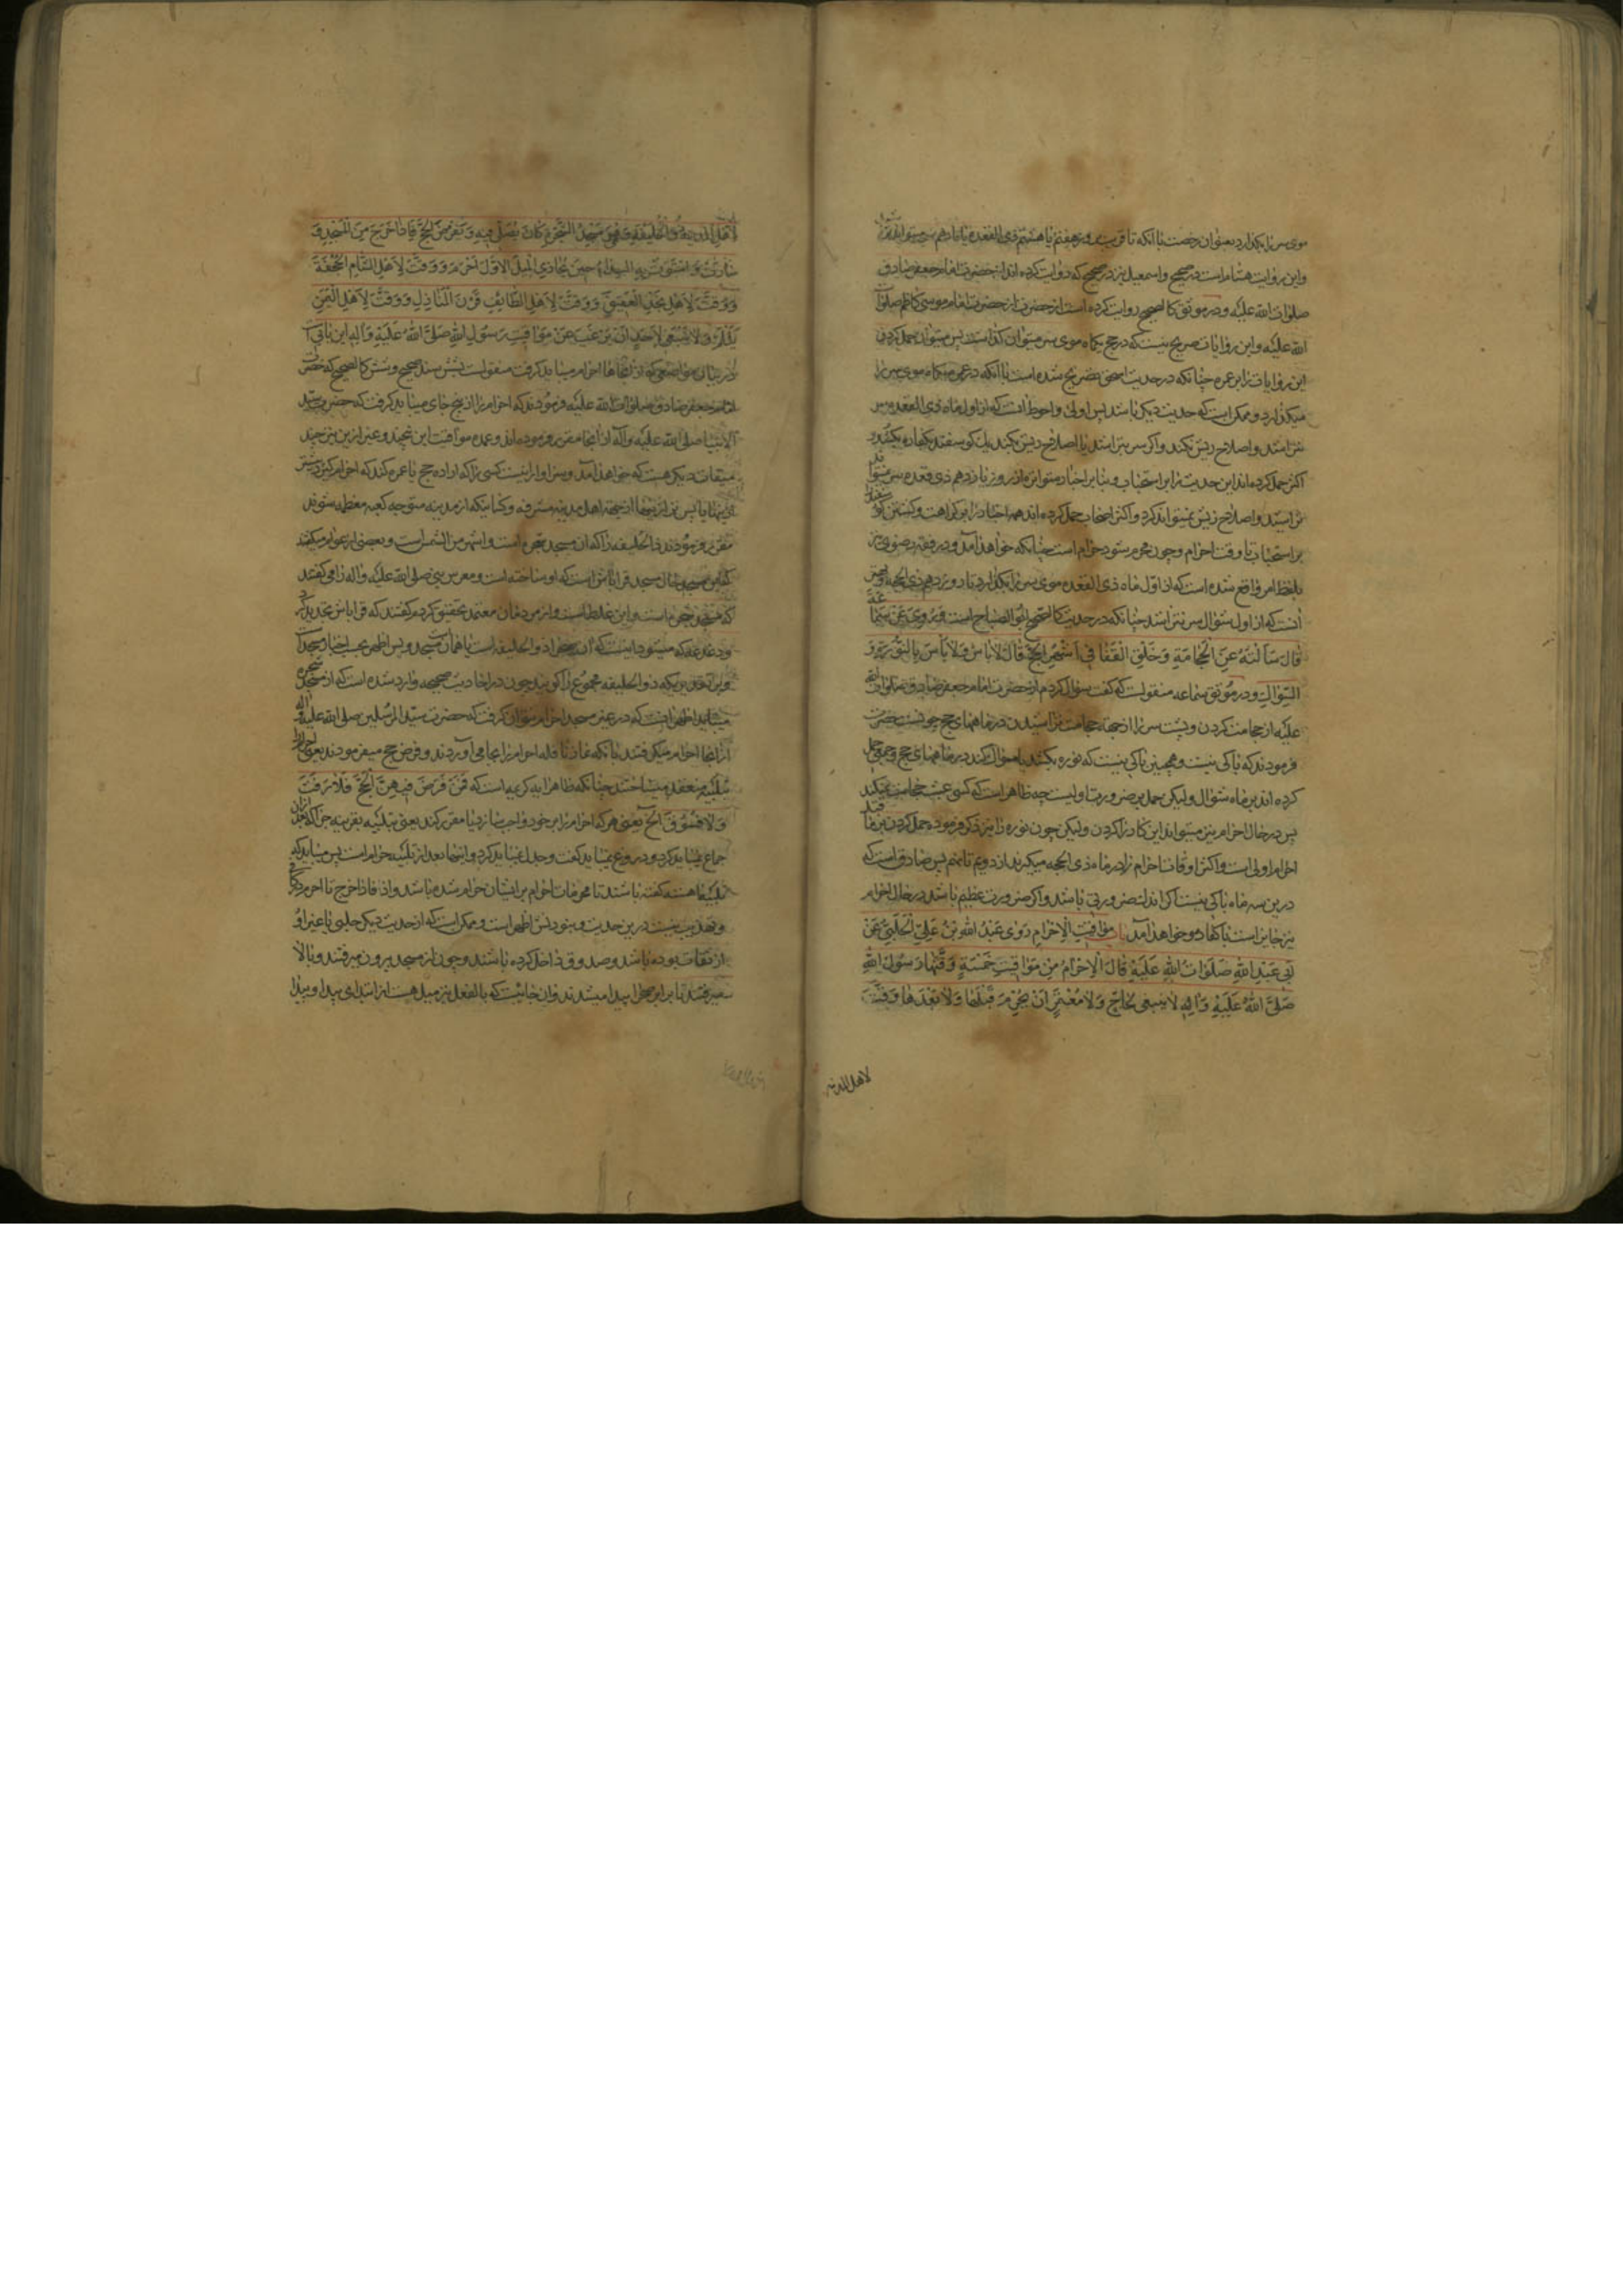 موی سر را بکذارد یعنی ان رخصت با آنکه تا قریب بروز هفتم یا هشتم ذی القعده یا یازدهم سر میتواند
واین روایت هشام است در صحیح واسمعیل نیز در صحیح که روایت کرده اند از حضرت امام جعفر صادق
صلوات الله علیه ودر موثق کالصحیح روایت کرده است از حضرت امام موسی کاظم صلوات
الله علیه واین روایات صریح نیست که در حج یکماه موی سر میتوان کذاشت پس میتوان حمل کردن
این روایات را بر عمره چنانکه در حدیث اسحق تصریح شده است با آنکه در عمره یکماه موی سر را
میکذارد و ممکن است که حدیث دیکر باشد پس اولی واحوط انست که از اول ماه ذی القعده سر
نتراشند واصلاح ریش نکنند واکر سر بتراشند یا اصلاح ریش بکنند یک کوسفند بکفاره بکشند و
اکثر حمل کرده اند این حدیث را بر استحباب وبنابر اخبار متواتره از روز یازدهم ذی قعده سر میتواند
تراشید واصلاح ریش میتواند کرد واکثر اصحاب حمل کرده اند همه اخبار را بر کراهت وکشتن کوسفند
بر استحباب تا وقت احرام وچون محرم شود حرام است چنانکه خواهد آمد ودر فقه رضوی نیز
بلفظ امر واقع شده است که از اول ماه ذی القعده موی سر را بکذارد تا روز دهم ذی الحجه
آنست که از اول شوال سر نتراشند چنانکه در حدیث کالصحیح ابو الصباح است وَرُوِیَ عَنْ سَمَاعَةَ
قَالَ سَأَلْتُهُ عَنِ الْحِجَامَةِ وَحَلْقِ الْقَفَا فِی اَشْهُرِ الْحَجِّ قَالَ لَا بَاْسَ وَلَا بَأْسَ بِالنُّورَةِ وَ
السِّوَاكِ ودر موثق سماعه منقولست که کفت سؤال کردم از حضرت امام جعفر صادق صلوات الله
علیه از حجامت کردن وپشت سر را از جهة حجامت تراشیدن در ماههای حج چونست حضرت
فرمودند که باکی نیست وهمچنین باکی نیست که نوره بکشد یا مسواک کند در ماههای حج وجمعی حمل
کرده اند بر ماه شوال ولیکن حمل بر ضرورت اولیست چه ظاهر است که کسی عبث حجامت نمیکند
پس در حال احرام نیز میتواند این کار را کردن ولیکن چون نوره را نیز ذکر فرموده حمل کردن بر ما قبل
احرام اولی است واکثر اوقات احرام را در ماه ذی الحجه میکیرند از دویم تا نهم پس صادق است که
درین سه ماه باکی نیست اکر اندک ضرورتی باشد واکر ضرورت عظیم باشد در حال احرام
نیز جایز است با کفاره و خواهد آمد باب مَوَاقِیتِ الْاِحْرَامِ رَوَی عُبَیْدُ اللهِ بْنُ عَلِیٍّ الْحَلَبِیُّ عَنْ
اَبِی عَبْدِ اللهِ صَلَوَاتُ اللهِ عَلَیْهِ قَالَ الْاِحْرَامُ مِنْ مَوَاقِیتَ خَمْسَةٍ وَقَّتَهَا رَسُولُ اللهِ
صَلَّی اللهُ عَلَیْهِ وَآلِهِ لَا یَنْبَغِی لِحَاجٍّ وَلَا مُعْتَمِرٍ اَنْ یُحْرِمَ قَبْلَهَا وَلَا بَعْدَهَا وَوَقَّتَ
لاهل المدینه
لِاَهْلِ الْمَدِینَةِ ذُو الْحُلَیْفَةِ وَهُوَ مَسْجِدُ الشَّجَرَةِ کَانَ یُصَلِّی فِیهِ وَیَفْرِضُ الْحَجَّ فَاِذَا خَرَجَ مِنَ الْمَسْجِدِ وَ
سَارَتْ وَاسْتَوَتْ بِهِ الْبَیْدَاءُ حِینَ یُحَاذِی الْمِیلَ الْاَوَّلَ اَحْرَمَ وَوَقَّتَ لِاَهْلِ الشَّامِ الْجُحْفَةَ
وَوَقَّتَ لِاَهْلِ نَجْدٍ الْعَقِیقَ وَوَقَّتَ لِاَهْلِ الطَّائِفِ قَرْنَ الْمَنَازِلِ وَوَقَّتَ لِاَهْلِ الْیَمَنِ
یَلَمْلَمَ وَلَا یَنْبَغِی لِاَحَدٍ اَنْ یَرْغَبَ عَنْ مَوَاقِیتِ رَسُولِ اللهِ صَلَّی اللهُ عَلَیْهِ وَآلِهِ این بابی است
در بیان مواضعی که از آنجاها احرام میباید کرفت منقولست بشش سند صحیح وشش کالصحیح که حضرت
امام جعفر صادق صلوات الله علیه فرمودند که احرام را از پنج جای میباید کرفت که حضرت سید
الانبیا صلی الله علیه وآله از آنجا مقرر فرموده اند وعمده مواقیت این پنجند وغیر ازین نیز چند
میقات دیکر هست که خواهد آمد وسزاوار نیست کسی را که اراده حج یا عمره کند که احرام کیرد پیشتر
ازینها یا پس تر از اینها از جهة اهل مدینه مشرفه وکسانیکه از مدینه متوجه کعبه معظمه شوند
مقرر فرمودند ذا الحلیفه را که ان مسجد شجره است واشهر من الشمس است وبعضی از عوام میکفتند
که این مسجد حال مسجد قراباش است که او ساخته است ومعرس نبی صلی الله علیه وآله را می کفتند
که مسجد شجره است واین غلط است واز مردمان معتمد تحقیق کردم کفتند که قراباش تجدید کرد
ودغدغه که میشود اینست که آن صحرا ذو الحلیفه است یا همان مسجد وپس اظهر بحسب اخبار مسجد است
وبر تقدیریکه ذو الحلیفه مجموع را کویند چون در احادیث صحیحه وارد شده است که از مسجد شجره
میباید اظهر انست که در غیر مسجد احرام نتوان کرفت که حضرت سید المرسلین صلی الله علیه وآله
از آنجا احرام میکرفتند بآنکه نماز نافله احرام را بجا می آوردند وفرض حج میفرمودند یعنی احرام را
بتلبیه منعقد میساختند چنانکه ظاهر آیه کریمه است که فَمَنْ فَرَضَ فِیهِنَّ الْحَجَّ فَلَا رَفَثَ
وَلَا فُسُوقَ الخ یعنی هر که احرام را بر خود واجب سازد یا مقرر کند یعنی بتلبیه بقرینه جزا که بعد از ان
جماع نمیباید کرد ودروغ نمیباید کفت وجدل نمیباید کرد واینها بعد از تلبیه حرام است پس میباید که
تلبیه اهسته کفته باشند تا محرمات احرام بر ایشان حرام شده باشد واذ فاذا خرج تا احرم در کافی
وتهذیب نیست درین حدیث ونبودنش اظهر است وممکن است که از حدیث دیکر حلبی یا غیر او
از ثقات بوده باشد وصدوق داخل کرده باشند وچون از مسجد بیرون میرفتند وبالا
میرفتند تا برابر صحرا پیدا میشدند وآن جائیست که بالفعل نیز میل هست از ابتدای بیدا وبیدا